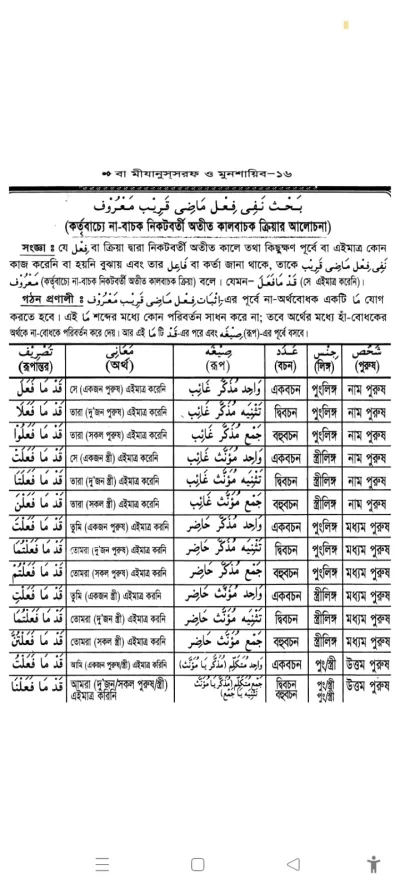 ➾ বা মীযানুস্সরফ ও মুনশায়িব-১৬
بَحْث نَفِى فِعْل مَاضِى قَرِيْب مَعْرُوْف
(কর্তৃবাচ্যে না-বাচক নিকটবর্তী অতীত কালবাচক ক্রিয়ার আলোচনা)
সংজ্ঞা : যে فِعْل বা ক্রিয়া দ্বারা নিকটবর্তী অতীত কালে তথা কিছুক্ষণ পূর্বে বা এইমাত্র কোন
কাজ করেনি বা হয়নি বুঝায় এবং তার فَاعِل বা কর্তা জানা থাকে, তাকে نَفِى فِعْل مَاضِى قَرِيْب
مَعْرُوْف (কর্তৃবাচ্যে না-বাচক নিকটবর্তী অতীত কালবাচক ক্রিয়া) বলে। যেমন– قَدْ مَا فَعَلَ (সে এইমাত্র করেনি)।
গঠন প্রণালী : اِثْبَات فِعْل مَاضِى قَرِيْب مَعْرُوْف-এর পূর্বে না-অর্থবোধক একটি مَا যোগ
করতে হবে। এই مَا শব্দের মধ্যে কোন পরিবর্তন সাধন করে না; তবে অর্থের মধ্যে হাঁ-বোধকের
অর্থকে না-বোধকে পরিবর্তন করে দেয়। আর এই مَا টি قَدْ-এর পরে এবং صِيْغَه (রূপ)-এর পূর্বে বসবে।
تَصْرِيْف مَعَانِى صِيْغَه عَدَد جِنْس شَخْص
(রূপান্তর) (অর্থ) (রূপ) (বচন) (লিঙ্গ) (পুরুষ)
قَدْ مَا فَعَلَ সে (একজন পুরুষ) এইমাত্র করেনি وَاحِد مُذَكَّر غَائِب একবচন পুংলিঙ্গ নাম পুরুষ
قَدْ مَا فَعَلَا তারা (দু'জন পুরুষ) এইমাত্র করেনি تَثْنِيَه مُذَكَّر غَائِب দ্বিবচন পুংলিঙ্গ নাম পুরুষ
قَدْ مَا فَعَلُوْا তারা (সকল পুরুষ) এইমাত্র করেনি جَمْع مُذَكَّر غَائِب বহুবচন পুংলিঙ্গ নাম পুরুষ
قَدْ مَا فَعَلَتْ সে (একজন স্ত্রী) এইমাত্র করেনি وَاحِد مُؤَنَّث غَائِب একবচন স্ত্রীলিঙ্গ নাম পুরুষ
قَدْ مَا فَعَلَتَا তারা (দু'জন স্ত্রী) এইমাত্র করেনি تَثْنِيَه مُؤَنَّث غَائِب দ্বিবচন স্ত্রীলিঙ্গ নাম পুরুষ
قَدْ مَا فَعَلْنَ তারা (সকল স্ত্রী) এইমাত্র করেনি جَمْع مُؤَنَّث غَائِب বহুবচন স্ত্রীলিঙ্গ নাম পুরুষ
قَدْ مَا فَعَلْتَ তুমি (একজন পুরুষ) এইমাত্র করনি وَاحِد مُذَكَّر حَاضِر একবচন পুংলিঙ্গ মধ্যম পুরুষ
قَدْ مَا فَعَلْتُمَا তোমরা (দু'জন পুরুষ) এইমাত্র করনি تَثْنِيَه مُذَكَّر حَاضِر দ্বিবচন পুংলিঙ্গ মধ্যম পুরুষ
قَدْ مَا فَعَلْتُمْ তোমরা (সকল পুরুষ) এইমাত্র করনি جَمْع مُذَكَّر حَاضِر বহুবচন পুংলিঙ্গ মধ্যম পুরুষ
قَدْ مَا فَعَلْتِ তুমি (একজন স্ত্রী) এইমাত্র করনি وَاحِد مُؤَنَّث حَاضِر একবচন স্ত্রীলিঙ্গ মধ্যম পুরুষ
قَدْ مَا فَعَلْتُمَا তোমরা (দু'জন স্ত্রী) এইমাত্র করনি تَثْنِيَه مُؤَنَّث حَاضِر দ্বিবচন স্ত্রীলিঙ্গ মধ্যম পুরুষ
قَدْ مَا فَعَلْتُنَّ তোমরা (সকল স্ত্রী) এইমাত্র করনি جَمْع مُؤَنَّث حَاضِر বহুবচন স্ত্রীলিঙ্গ মধ্যম পুরুষ
قَدْ مَا فَعَلْتُ আমি (একজন পুরুষ/স্ত্রী) এইমাত্র করিনি وَاحِد مُتَكَلِّم (مُذَكَّر يَا مُؤَنَّث) একবচন পুং/স্ত্রী উত্তম পুরুষ
قَدْ مَا فَعَلْنَا আমরা (দু'জন/সকল পুরুষ/স্ত্রী) جَمْع مُتَكَلِّم (مُذَكَّر يَا مُؤَنَّث দ্বিবচন পুং/স্ত্রী উত্তম পুরুষ
এইমাত্র করিনি تَثْنِيَه يَا جَمْع) বহুবচন পুং/স্ত্রী